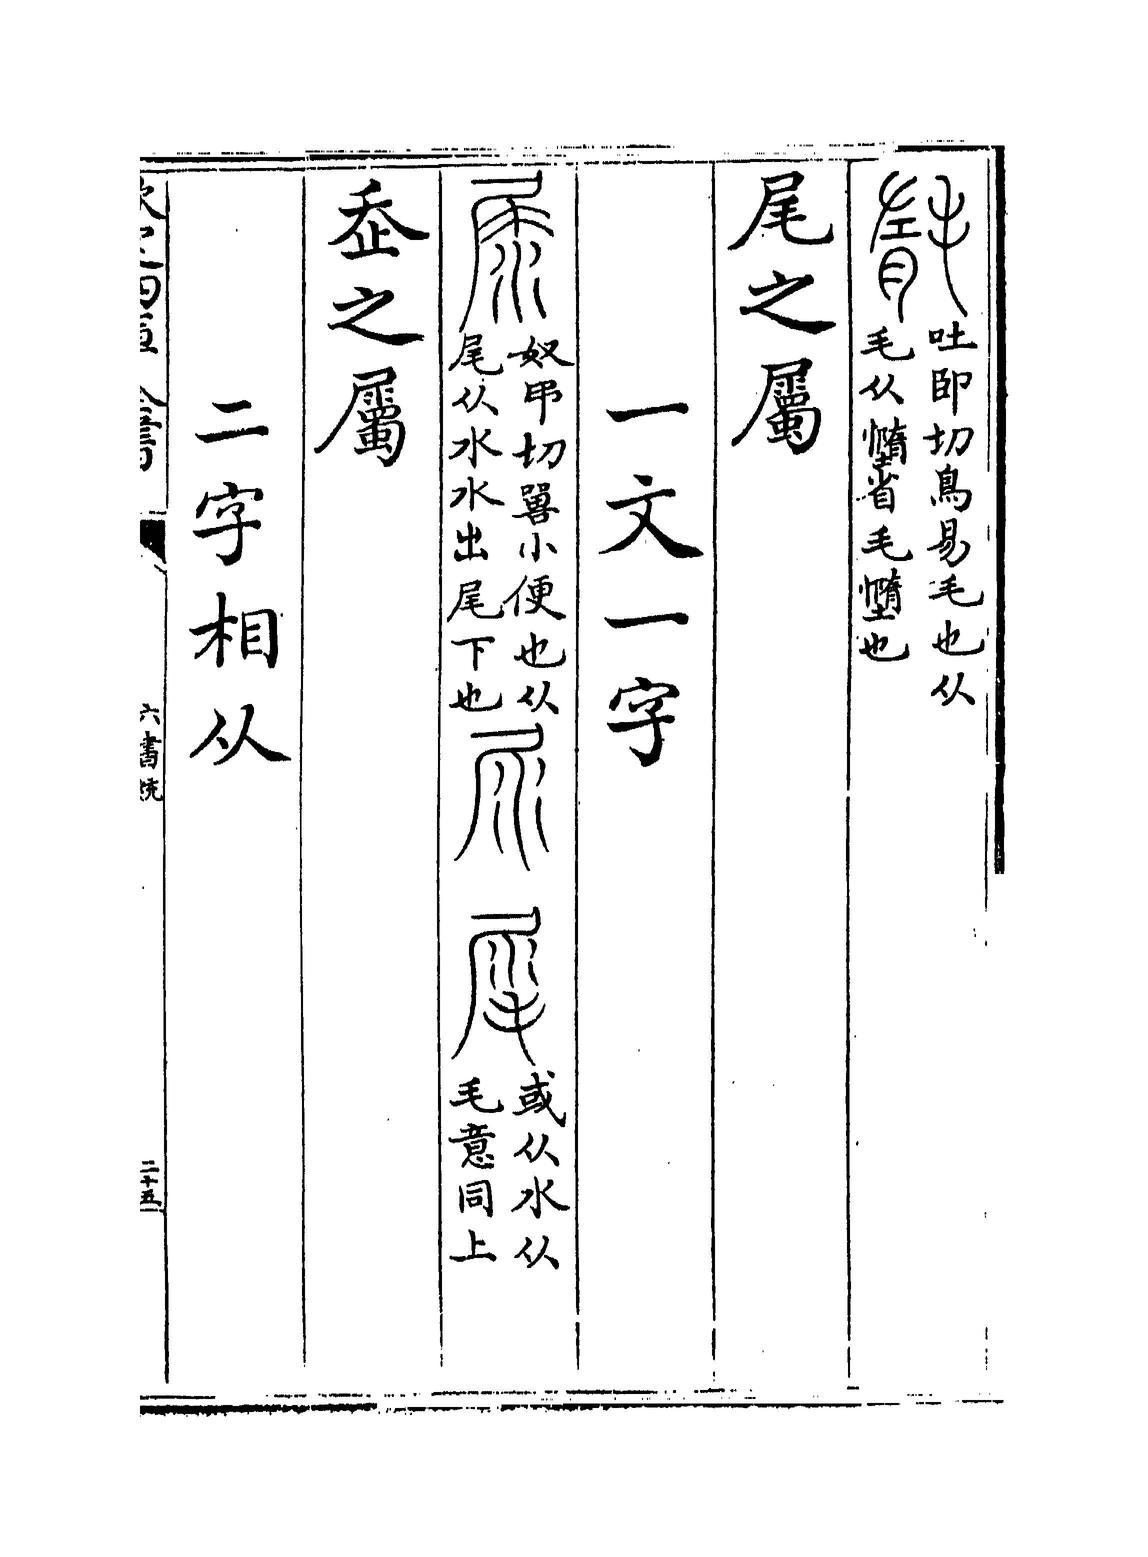 吐卧切鳥易毛也从
毛从憜省毛憜也
尾之屬
一文一字
奴弔切嘼小便也从
尾从水水出尾下也
或从水从
毛意同上
之屬
二字相从
六書統
二十五